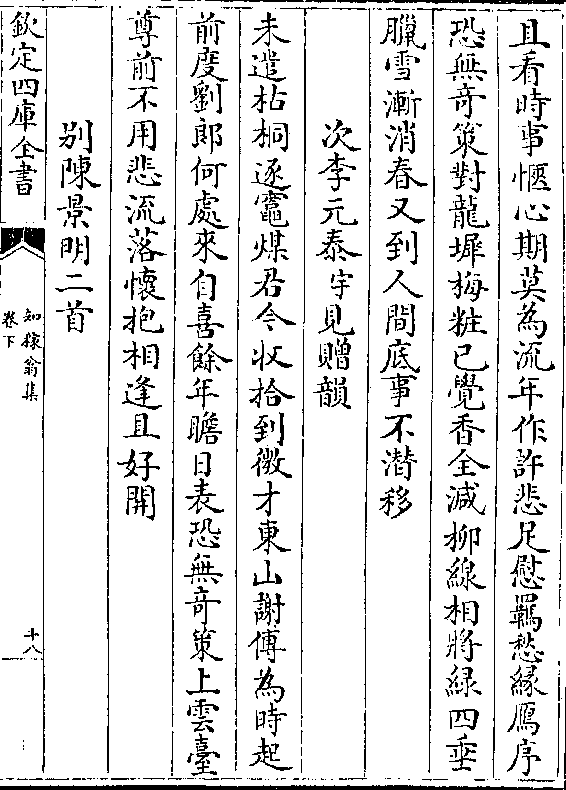 且看時事愜心期莫為流年作許悲足慰羈愁縁鴈序
恐無竒策對龍墀梅粧已覺香全減柳線相將緑四垂
臘雪漸消春又到人間底事不潛移
次李元泰字見贈韻
未遣枯桐逐竈煤君今收拾到微才東山謝傅為時起
前度劉郎何處來自喜餘年瞻日表恐無竒策上雲臺
尊前不用悲流落懷抱相逢且好開
別陳景明二首
欽定四庫全書
知稼翁集
卷下
十八